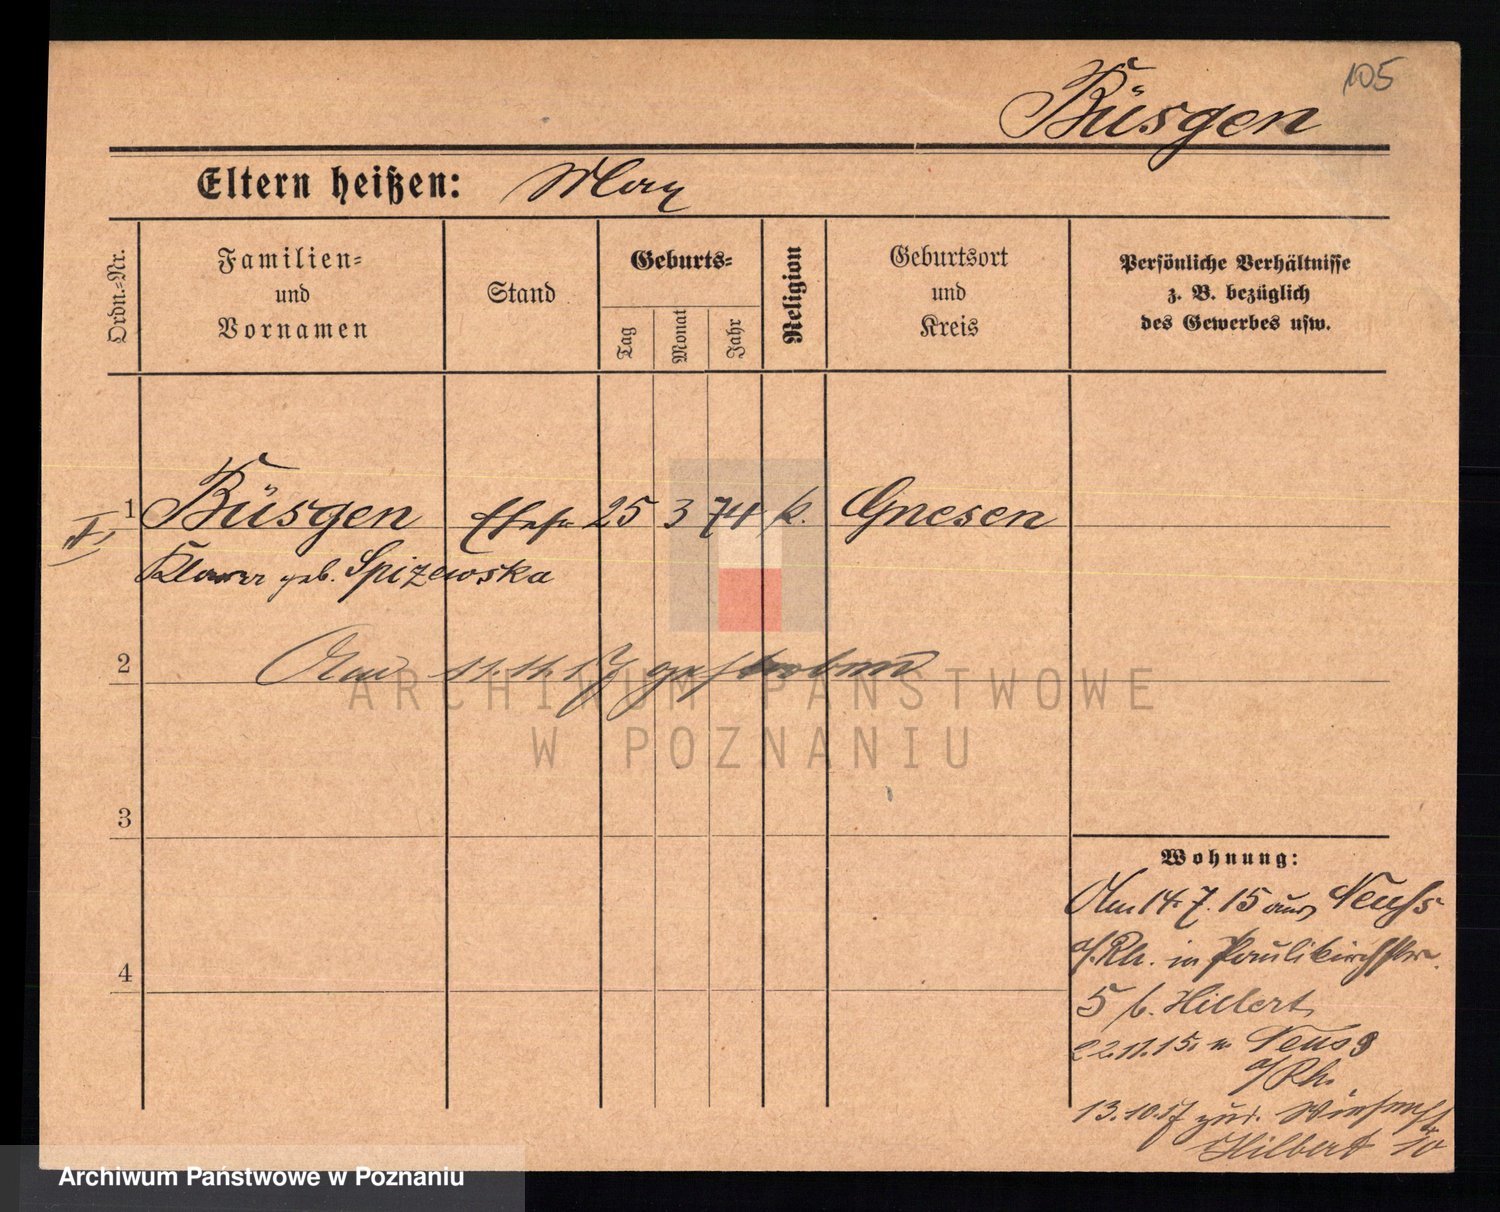 105
Büsgen
Eltern heißen: Max
Ordn.-Nr.
Familien-
und
Vornamen
Stand
Geburts-
Tag
Monat
Jahr
Religion
Geburtsort
und
Kreis
Persönliche Verhältnisse
z. B. bezüglich
des Gewerbes usw.
1 Büsgen Ehefr. 25 3 74 k. Gnesen
geb. Spizewska
2 Am 11.11.17 gestorben
3
4
Wohnung:
Am 14.7.15 aus Neuss
a/Rh. in Paulikirchstr.
5 b. Hilbert
22.11.15. n. Neuss
a/Rh.
13.10.17 zur.
Hilbert 10
ARCHIWUM PAŃSTWOWE
W POZNANIU
Archiwum Państwowe w Poznaniu